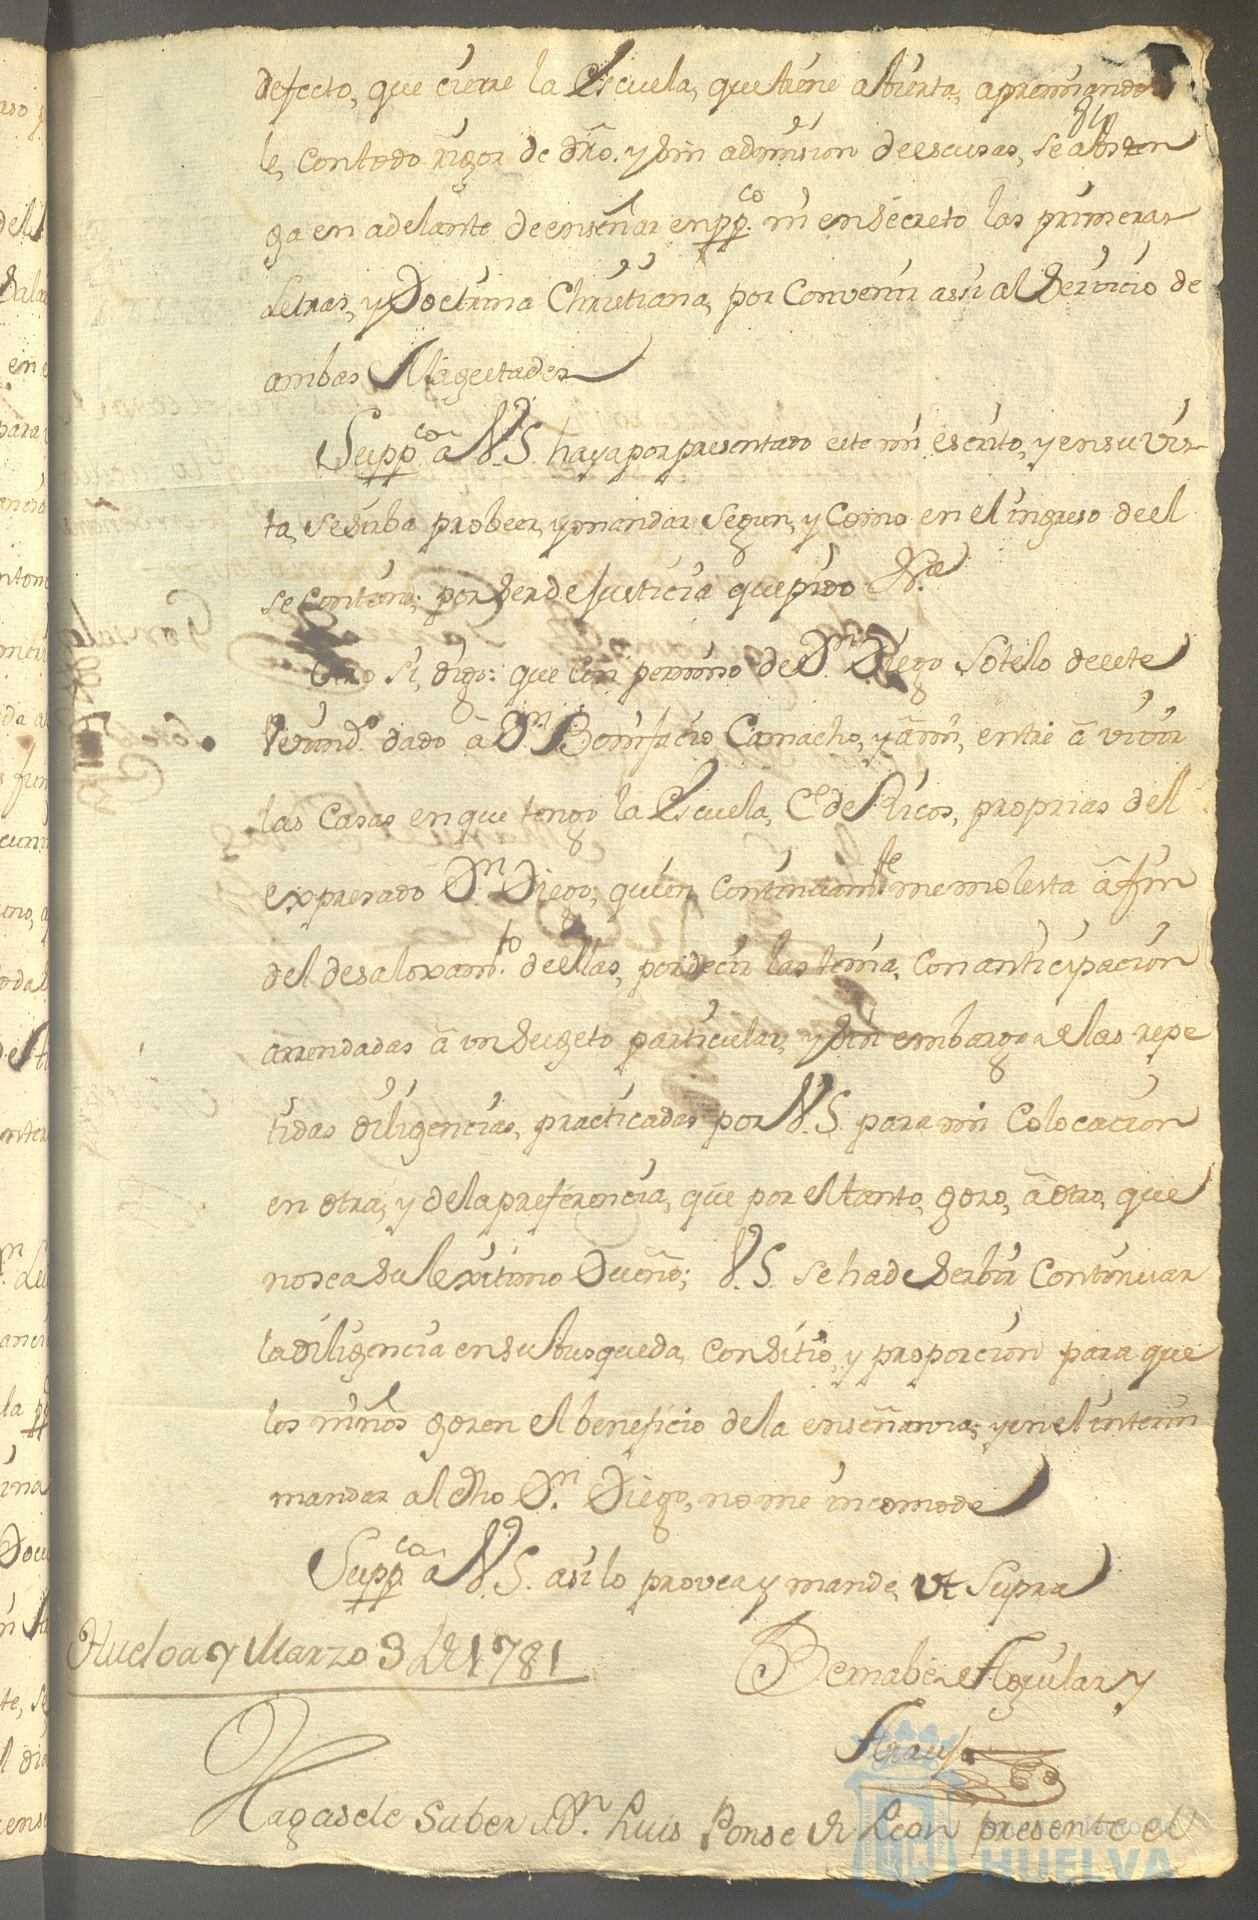 defecto, que cierre la Escuela, que tiene abierta, apremiando
le, con todo rigor de dro. y sin admision de escusas, se absten
ga en adelante de enseñar en pp.co ni en secreto las primeras
Letras, y Doctrina Christiana, por convenir assi al Servicio de
ambas Magestades
Supp.co a V.S. haya por presentado este mi escrito, y en su vis-
ta, se sirba probeer, y mandar segun, y como en el ingreso de el
se contiene; por ser de Justicia que pido &.a
Otro si, digo: que con permiso de Dn. Diego Sotelo de este
Vecind.o dado â Dn. Bonifacio Camacho, y â mi, entré â vivir
las Casas en que tengo la Escuela, C.e de Ricos, proprias del
expresado Dn. Diego, quien continuam.te me molesta â fin
del desaloxam.to de ellas, por decir las tenia, con anticipacion
arrendadas â un Sugeto particular, y sin embargo de las repe
tidas diligencias, practicadas por V.S. para mi colocacion
en otra, y de la preferencia, que por el tanto, gozo, â otro, que
no sea su lexitimo Dueño; V.S. se ha de serbir continuar
la diligencia en su busqueda, con sitio, y proporcion para que
los niños gozen el beneficio de la enseñanza; y en el interin
mandar al dho Dn. Diego, no me incomode
Supp.co a V.S. asi lo provea y mande, ut supra
Huelva y Marzo 3 de 1781
Bernabe Aguilar y
Araujo
Hagasele saber a Dn. Luis Ponse de Leon presente el
HUELVA